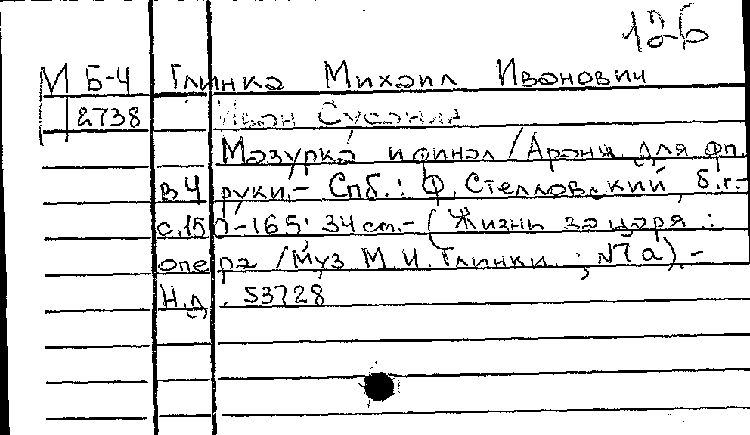 126
М Б-4 Глинка Михаил Иванович
2738 Иван Сусанин
Мазурка и финал / Аранж. для фп.
в 4 руки. - Спб.: Ф. Стелловский, б.г. -
с.150-165; 34 см. - (Жизнь за царя :
опера / Муз М. И. Глинки ; №7а). -
Н.д. 53728